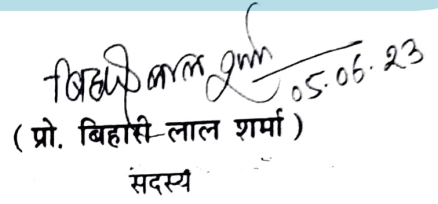 बिहारी लाल शर्मा
05.06.23
( प्रो. बिहारी लाल शर्मा )
सदस्य